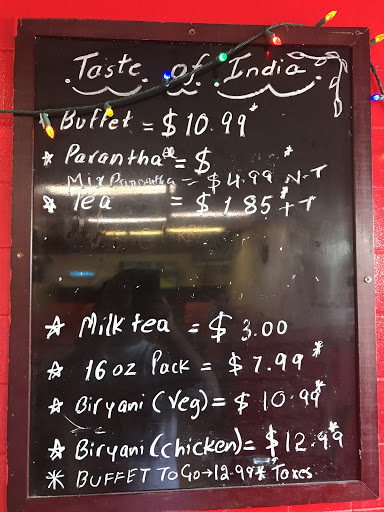 Taste of India
Buffet = $10.99*
* Parantha = $
Mix Parantha = $4.99 N-T
* Tea = $1.85*+T
☆ Milk tea = $3.00
☆ 16oz Pack = $7.99*
☆ Biryani (Veg) = $10.99*
☆ Biryani (chicken) = $12.99*
* BUFFET TO GO→12.99* Taxes